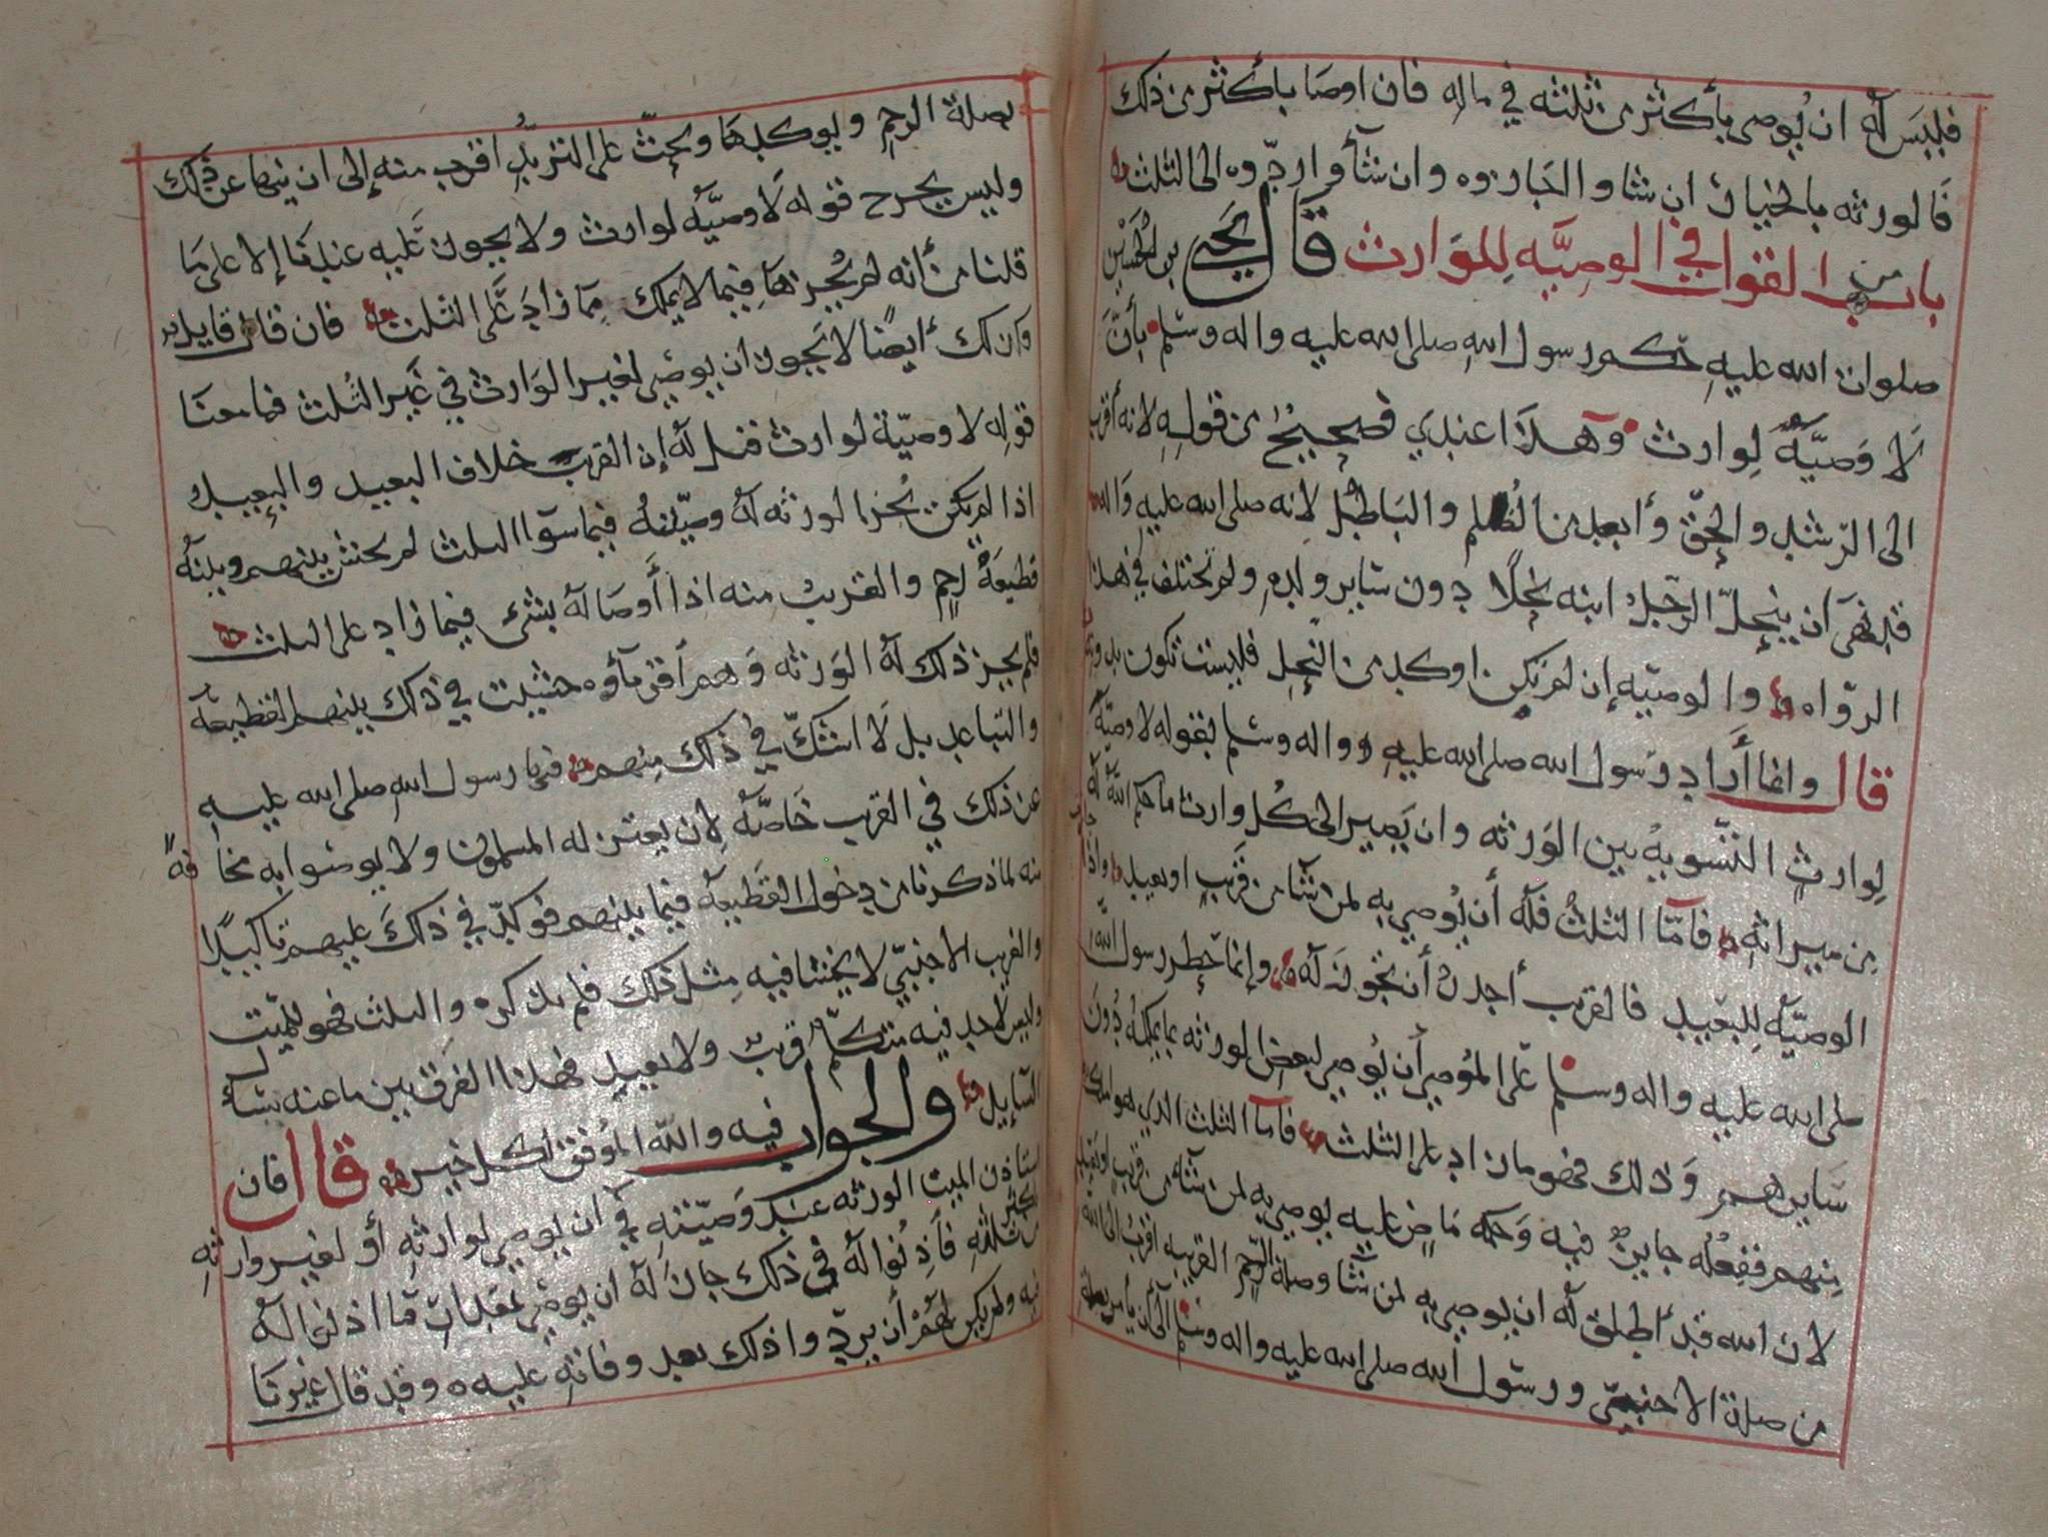 فليس له ان يوصي بأكثر من ثلثه في ماله فان اوصا بأكثر من ذلك
فالورثه بالخيار ان شاوا اجازوه وان شآوا ردّوه الى الثلث
باب القول في الوصيّه للوارث قال يحيى بن الحسين
صلوات الله عليه حكم رسول الله صلى الله عليه واله وسلم بأنّ
لا وصيّه لوارث وهذا عندي فصحيح من قوله لانه أقرب
الى الرّشد والحقّ وأبعد من الظلم والباطل لانه صلى الله عليه واله
قد نهى ان ينحل الرجل ابنه نحلا دون ساير ولده ولم تختلف في هذا
الرّواه والوصيّه إن لم تكن اوكد من النحل فليست تكون بدونه
قال وانما أراد رسول الله صلى الله عليه واله وسلم بقوله لا وصيّة
لوارث التّسويه بين الورثه وان يصير الى كل وارث ما حكم الله له
من ميراثه فأمّا الثلث فله أن يوصي به لمن شآ من قريب او بعيد واذا
الوصيّه للبعيد فالقريب أجدر أن تجوز له وإنما حظر رسول الله
صلى الله عليه واله وسلم على الموصي أن يوصي لبعض الورثه بما يملكه دون
سايرهم وذلك فهو ما زاد على الثلث فأما الثلث الذي هو له
منهم ففعله جايز فيه وحكمه ماض عليه يوصي به لمن شآ من قريب او بعيد
لان الله قد أطلق له ان يوصي به لمن شآ وصلة الرّحم القريبه اقرب الى الله
من صلة الاجنبيّ ورسول الله صلى الله عليه واله وسلم الى أن يأمر بصلة
بصلة الرحم ويوكدها ويحثّ على التزيّد اقرب منه إلى ان ينها عن ذلك
وليس يخرج قوله لا وصيّه لوارث ولا يجوز عليه عندنا إلا على ما
قلنا من أنه لم يجزها فيما لا يملك مما زاد على الثلث فان قال قايل
وكذلك أيضا لا تجوز ان يوصي لغير الوارث في غير الثلث فما معنا
قوله لا وصيّة لوارث قيل له إن القريب خلاف البعيد والبعيد
اذا لم يكن تجز الورثه له وصيّته فيما سوا الثلث لم يخش بينهم وبينه
قطيعة رحم والقريب منه اذا أوصا له بشئ فيما زاد على الثلث
فلم يجز ذلك له الورثه وهم أقربآوه خشيت في ذلك بينهم القطيعة
والتباعد بل لا اشكّ في ذلك منهم فنها رسول الله صلى الله عليه
عن ذلك في القريب خاصّه لان يعتزله المسلمون ولا يوصوا به مخافة
منه لما ذكرنا من دخول القطيعه فيما بينهم فوكد في ذلك عليهم تاكيدا
والغريب الاجنبيّ لا يخشا فيه مثل ذلك فلم يذكره والثلث فهو للميّت
وليس لاحد فيه متكلم قريب ولا بعيد فهذا الفرق بين ما عنه يسئل
السّايل والجواب فيه والله الموفق لكل خير قال فان
استاذن الميت الورثه عند وصيّته في ان يوصي لوارثه أو لغير وارثه
بأكثر من ثلثه فأذنوا له في ذلك جاز له ان يوصي بمقدار ما اذنوا له
فيه ولم يكن لهم أن يردّوا ذلك بعد وفاته عليه وقد قال غيرنا